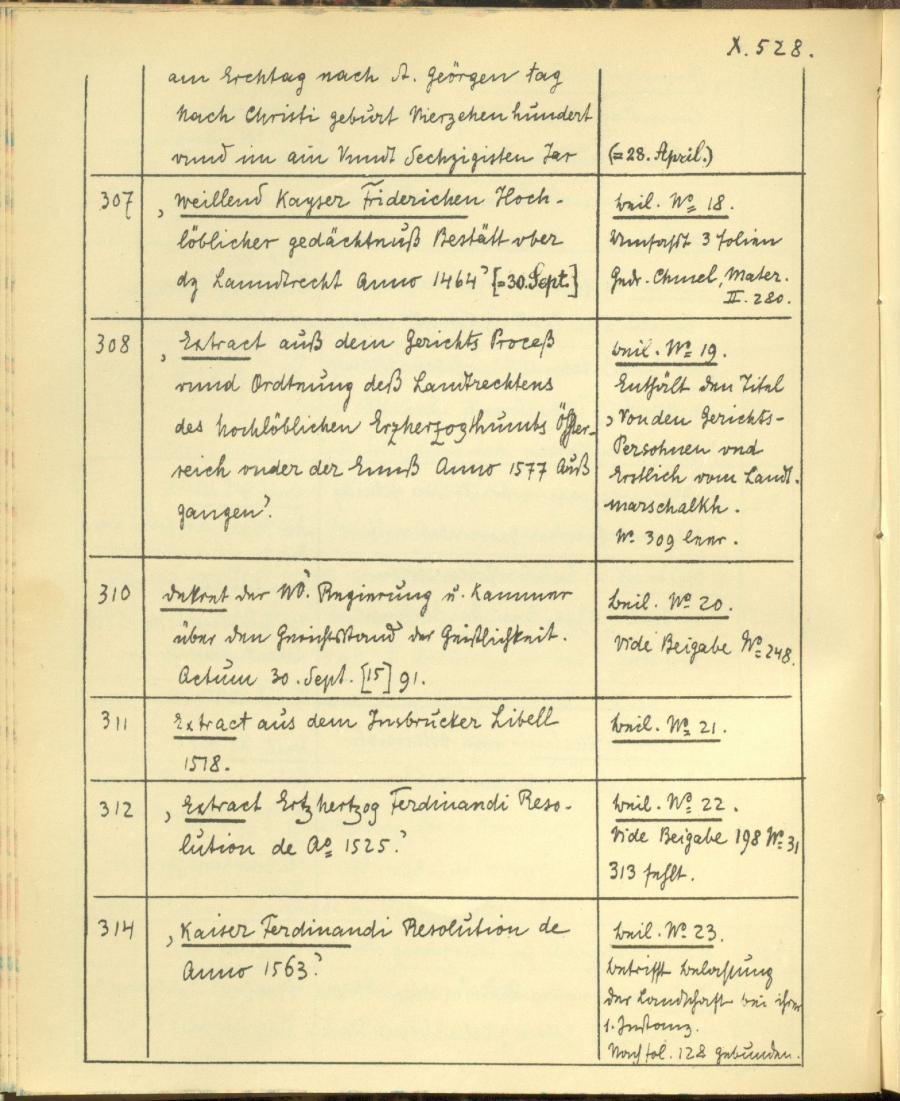 X. 528.
am Erchtag nach S. Geörgen tag
Nach Christi geburt Vierzehen hundert
vnnd im ain Vnndt Sechzigisten Jar
(= 28. April.)
307
‚Weillend Kayser Friderichen Hoch-
löblicher gedächtnuß Bestätt vber
dz Lanndtrecht Anno 1464’ [= 30. Sept.]
beil. No 18.
Umfasst 3 folien
Gedr. Chmel, Mater.
II. 280.
308
‚Extract auß dem Gerichts Proceß
vnnd Ordtnung deß Landtrechtens
des hochlöblichen Erzherzogthumbs Öster-
reich vnder der Ennß Anno 1577 Auß
gangen’.
beil. No 19.
Enthält den Titel
‚Von den Gerichts-
Persohnen vnd
Erstlich vom Landt-
marschalkh.
No 309 leer.
310
Dekret der NÖ. Regierung u. Kammer
über den Gerichtsstand der Geistlichkeit.
Actum 30. Sept. [15]91.
beil. No 20.
Vide Beigabe No 248.
311
Extract aus dem Insbrucker Libell
1518.
beil. No 21.
312
‚Extract Ertzhertzog Ferdinandi Reso-
lution de Ao 1525.’
beil. No 22.
Vide Beigabe 198 No 31
313 fehlt.
314
‚Kaiser Ferdinandi Resolution de
Anno 1563’.
beil. No 23.
betrifft belassung
der Landschaft bei ihrer
1. Instanz.
Nach fol. 128 gebunden.